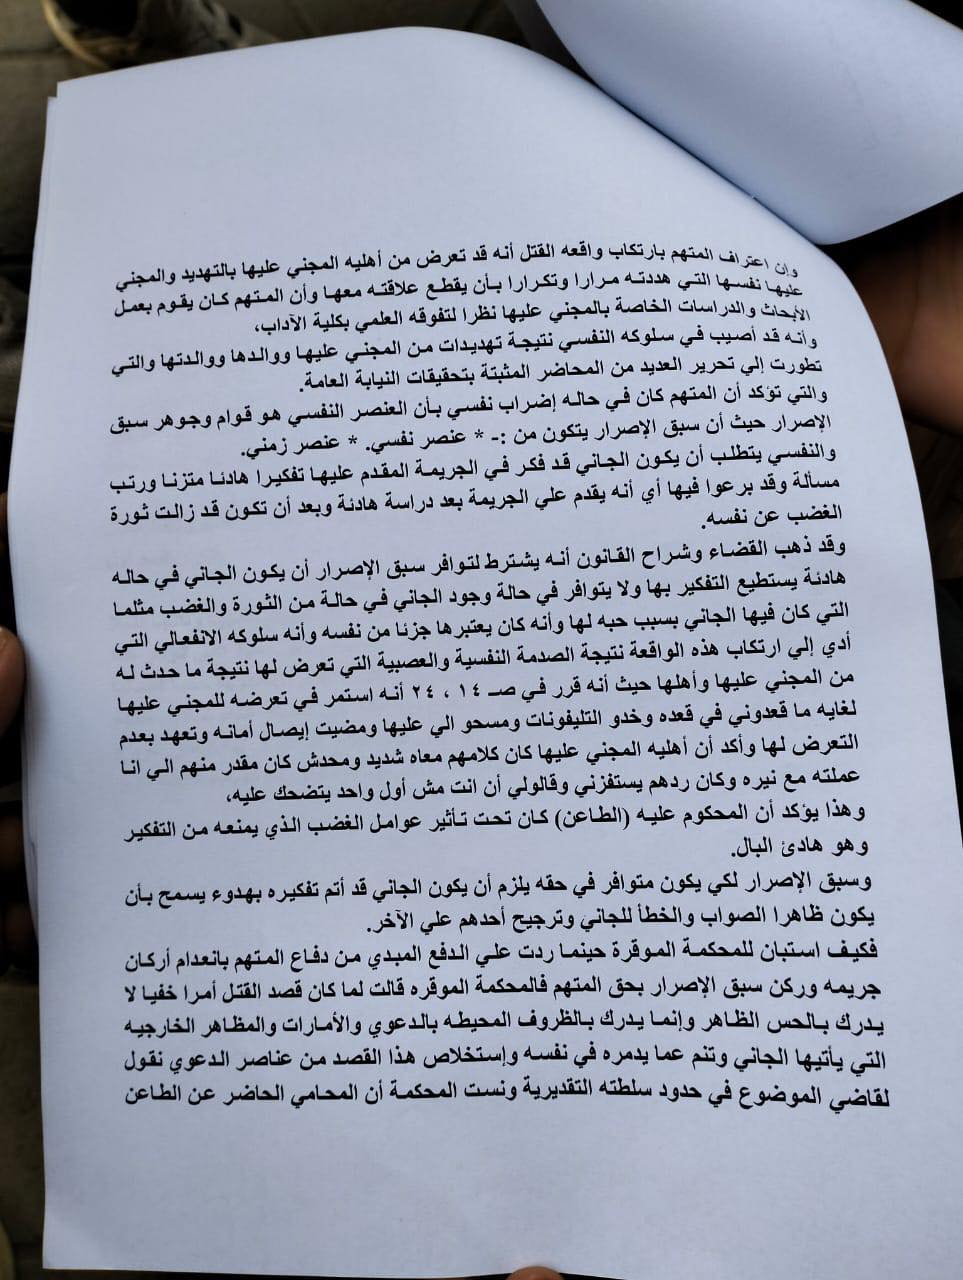 وإن اعتراف المتهم بارتكاب واقعه القتل أنه قد تعرض من أهليه المجني عليها بالتهديد والمجني
عليها نفسها التي هددته مرارا وتكرارا بأن يقطع علاقته معها وأن المتهم كان يقوم بعمل
الأبحاث والدراسات الخاصة بالمجني عليها نظرا لتفوقه العلمي بكلية الآداب،
وأنه قد أصيب في سلوكه النفسي نتيجة تهديدات من المجني عليها ووالدها ووالدتها والتي
تطورت إلي تحرير العديد من المحاضر المثبتة بتحقيقات النيابة العامة.
والتي تؤكد أن المتهم كان في حاله إضراب نفسي بأن العنصر النفسي هو قوام وجوهر سبق
الإصرار حيث أن سبق الإصرار يتكون من :- * عنصر نفسي. * عنصر زمني.
والنفسي يتطلب أن يكون الجاني قد فكر في الجريمة المقدم عليها تفكيرا هادئا متزنا ورتب
مسألة وقد برعوا فيها أي أنه يقدم علي الجريمة بعد دراسة هادئة وبعد أن تكون قد زالت ثورة
الغضب عن نفسه.
وقد ذهب القضاء وشراح القانون أنه يشترط لتوافر سبق الإصرار أن يكون الجاني في حاله
هادئة يستطيع التفكير بها ولا يتوافر في حالة وجود الجاني في حالة من الثورة والغضب مثلما
التي كان فيها الجاني بسبب حبه لها وأنه كان يعتبرها جزئا من نفسه وأنه سلوكه الانفعالي التي
أدي إلي ارتكاب هذه الواقعة نتيجة الصدمة النفسية والعصبية التي تعرض لها نتيجة ما حدث له
من المجني عليها وأهلها حيث أنه قرر في صـ ١٤ ، ٢٤ أنه استمر في تعرضه للمجني عليها
لغايه ما قعدوني في قعده وخدو التليفونات ومسحو الي عليها ومضيت إيصال أمانه وتعهد بعدم
التعرض لها وأكد أن أهليه المجني عليها كان كلامهم معاه شديد ومحدش كان مقدر منهم الي انا
عملته مع نيره وكان ردهم يستفزني وقالولي أن انت مش أول واحد يتضحك عليه،
وهذا يؤكد أن المحكوم عليه (الطاعن) كان تحت تأثير عوامل الغضب الذي يمنعه من التفكير
وهو هادئ البال.
وسبق الإصرار لكي يكون متوافر في حقه يلزم أن يكون الجاني قد أتم تفكيره بهدوء يسمح بأن
يكون ظاهرا الصواب والخطأ للجاني وترجيح أحدهم علي الآخر.
فكيف استبان للمحكمة الموقرة حينما ردت علي الدفع المبدي من دفاع المتهم بانعدام أركان
جريمه وركن سبق الإصرار بحق المتهم فالمحكمة الموقره قالت لما كان قصد القتل أمرا خفيا لا
يدرك بالحس الظاهر وإنما يدرك بالظروف المحيطه بالدعوي والأمارات والمظاهر الخارجيه
التي يأتيها الجاني وتنم عما يدمره في نفسه وإستخلاص هذا القصد من عناصر الدعوي نقول
لقاضي الموضوع في حدود سلطته التقديرية ونست المحكمة أن المحامي الحاضر عن الطاعن